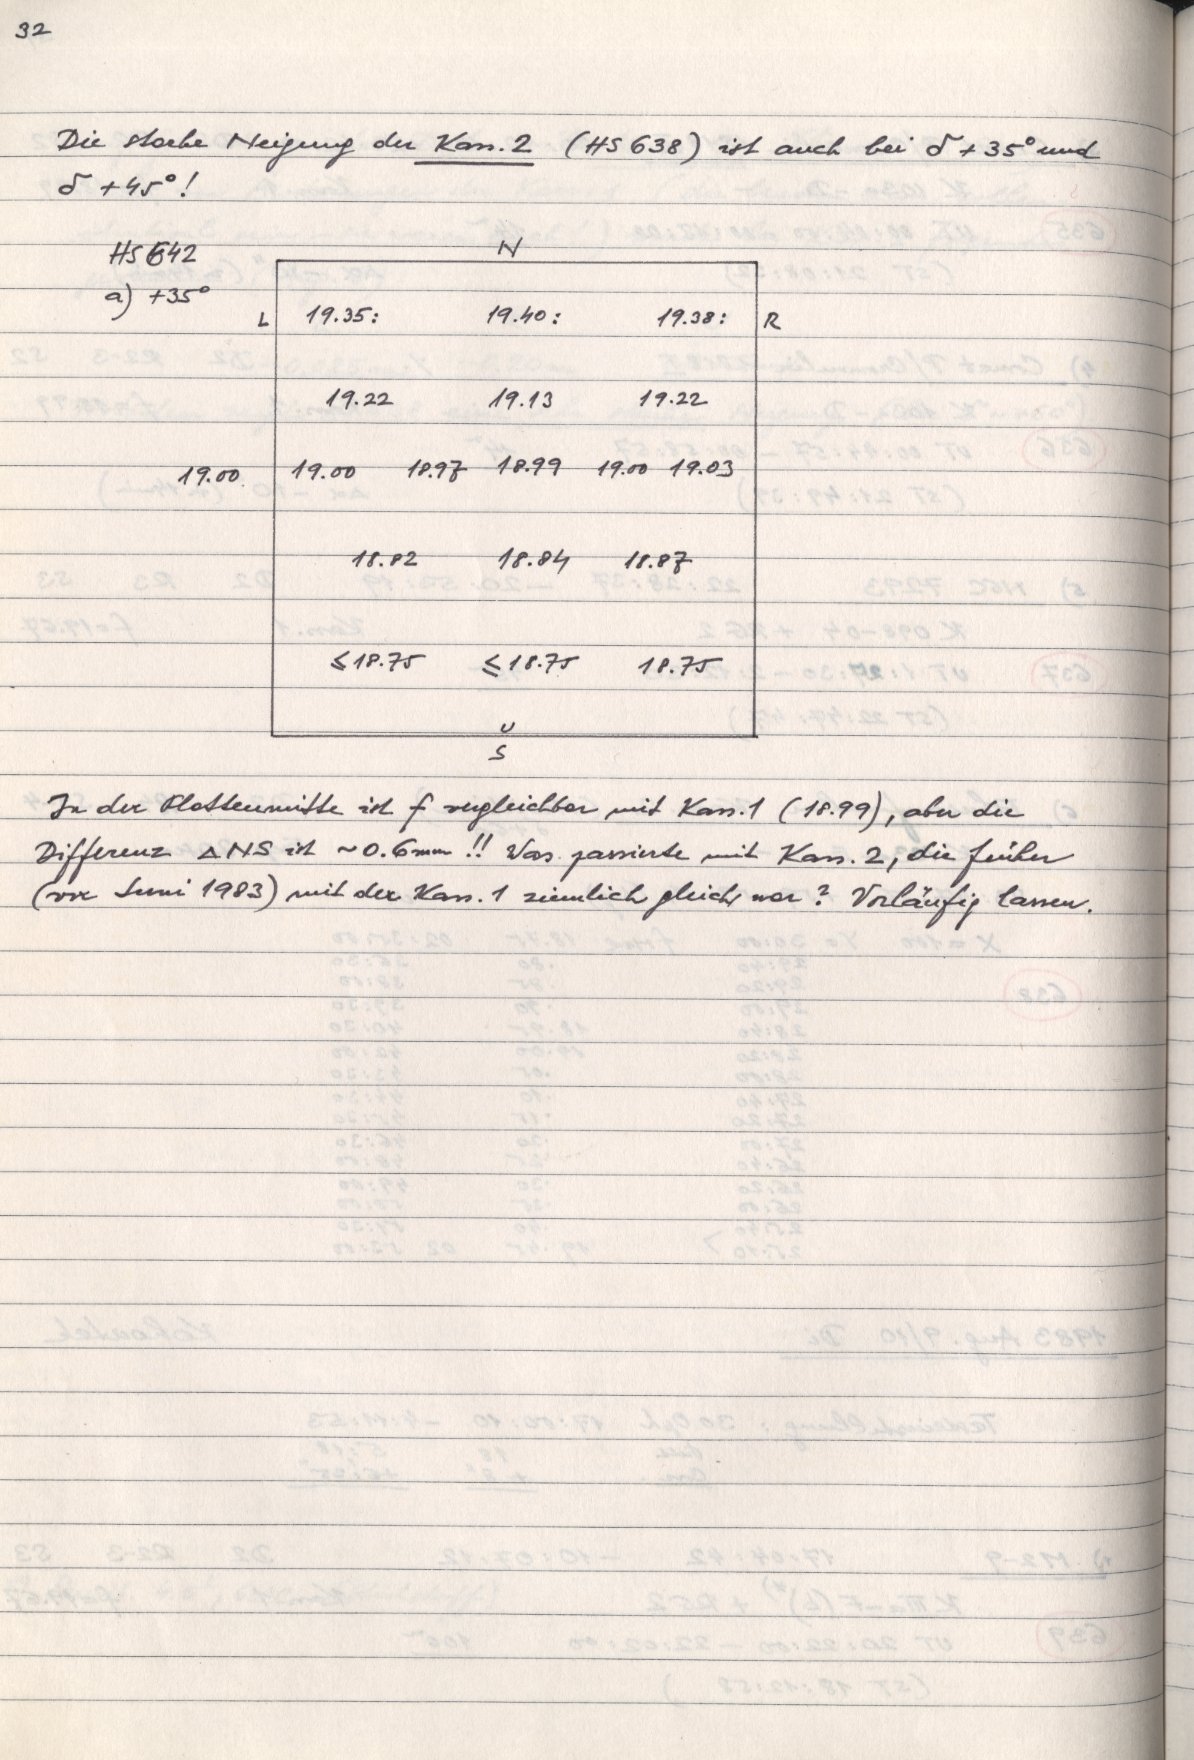 32
Die starke Neigung der Kass. 2 (HS 638) ist auch bei δ +35° und
δ +45°!
HS 642
a) +35°
N
L 19.35: 19.40: 19.38: R
19.22 19.13 19.22
19.00 19.00 18.97 18.99 19.00 19.03
18.82 18.84 18.87
≤18.75 ≤18.75 18.75
U
S
In der Plattenmitte ist f vergleichbar mit Kass. 1 (18.99), aber die
Differenz ΔNS ist ~0.6mm!! Was passierte mit Kass. 2, die früher
(vor Juni 1983) mit der Kass. 1 ziemlich gleich war? Vorläufig lassen.